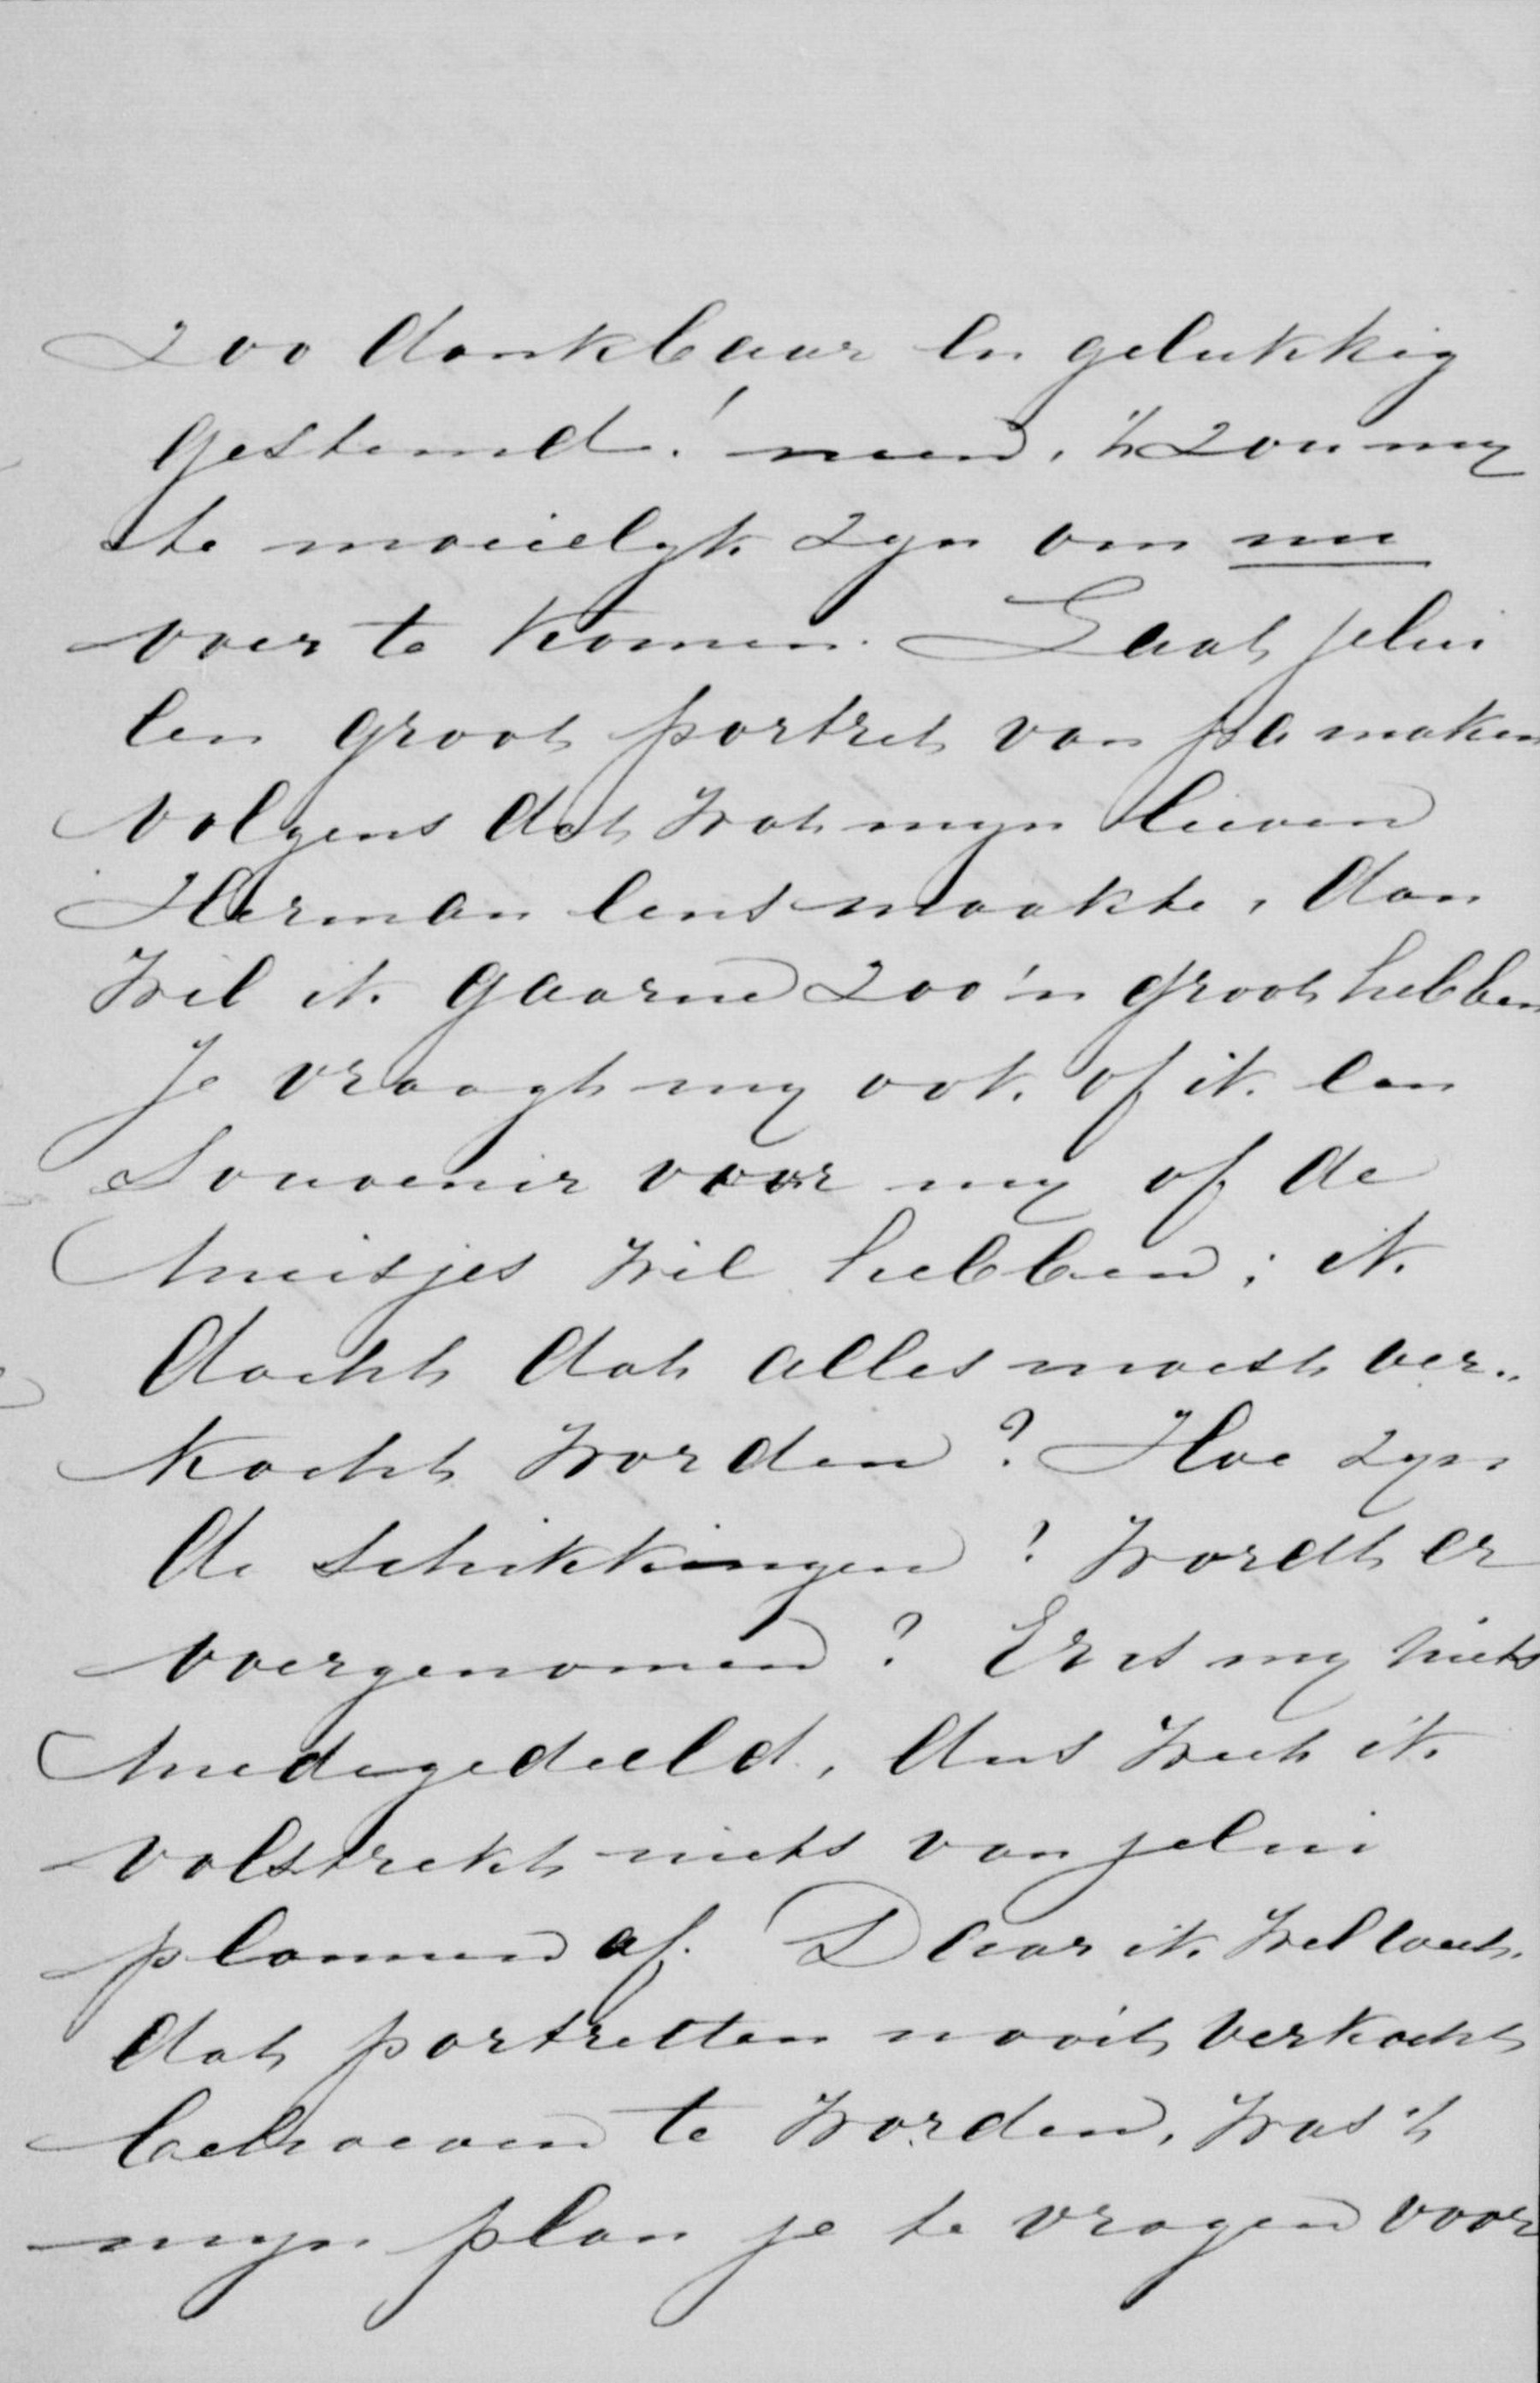 zoo dankbaar en gelukkig
gestemd! neen, 't zou my
te moeielyk zyn om nu
over te komen. Laat jelui
een groot portret van pa maken
volgens dat wat myn lieven
Herman eens maakte, dan
wil ik gaarne zoo'n groot hebben
Je vraagt my ook of ik een
souvenir voor my of de
meisjes wil hebben; ik
dacht dat alles moest ver„
kocht worden? Hoe zyn
de schikkingen? wordt er
overgenomen? Er is my niets
medegedeeld, dus weet ik
volstrekt niets van jelui
plannen af. Daar ik wel weet
dat portretten nooit verkocht
behoeven te worden, was 't
myn plan je te vragen voor